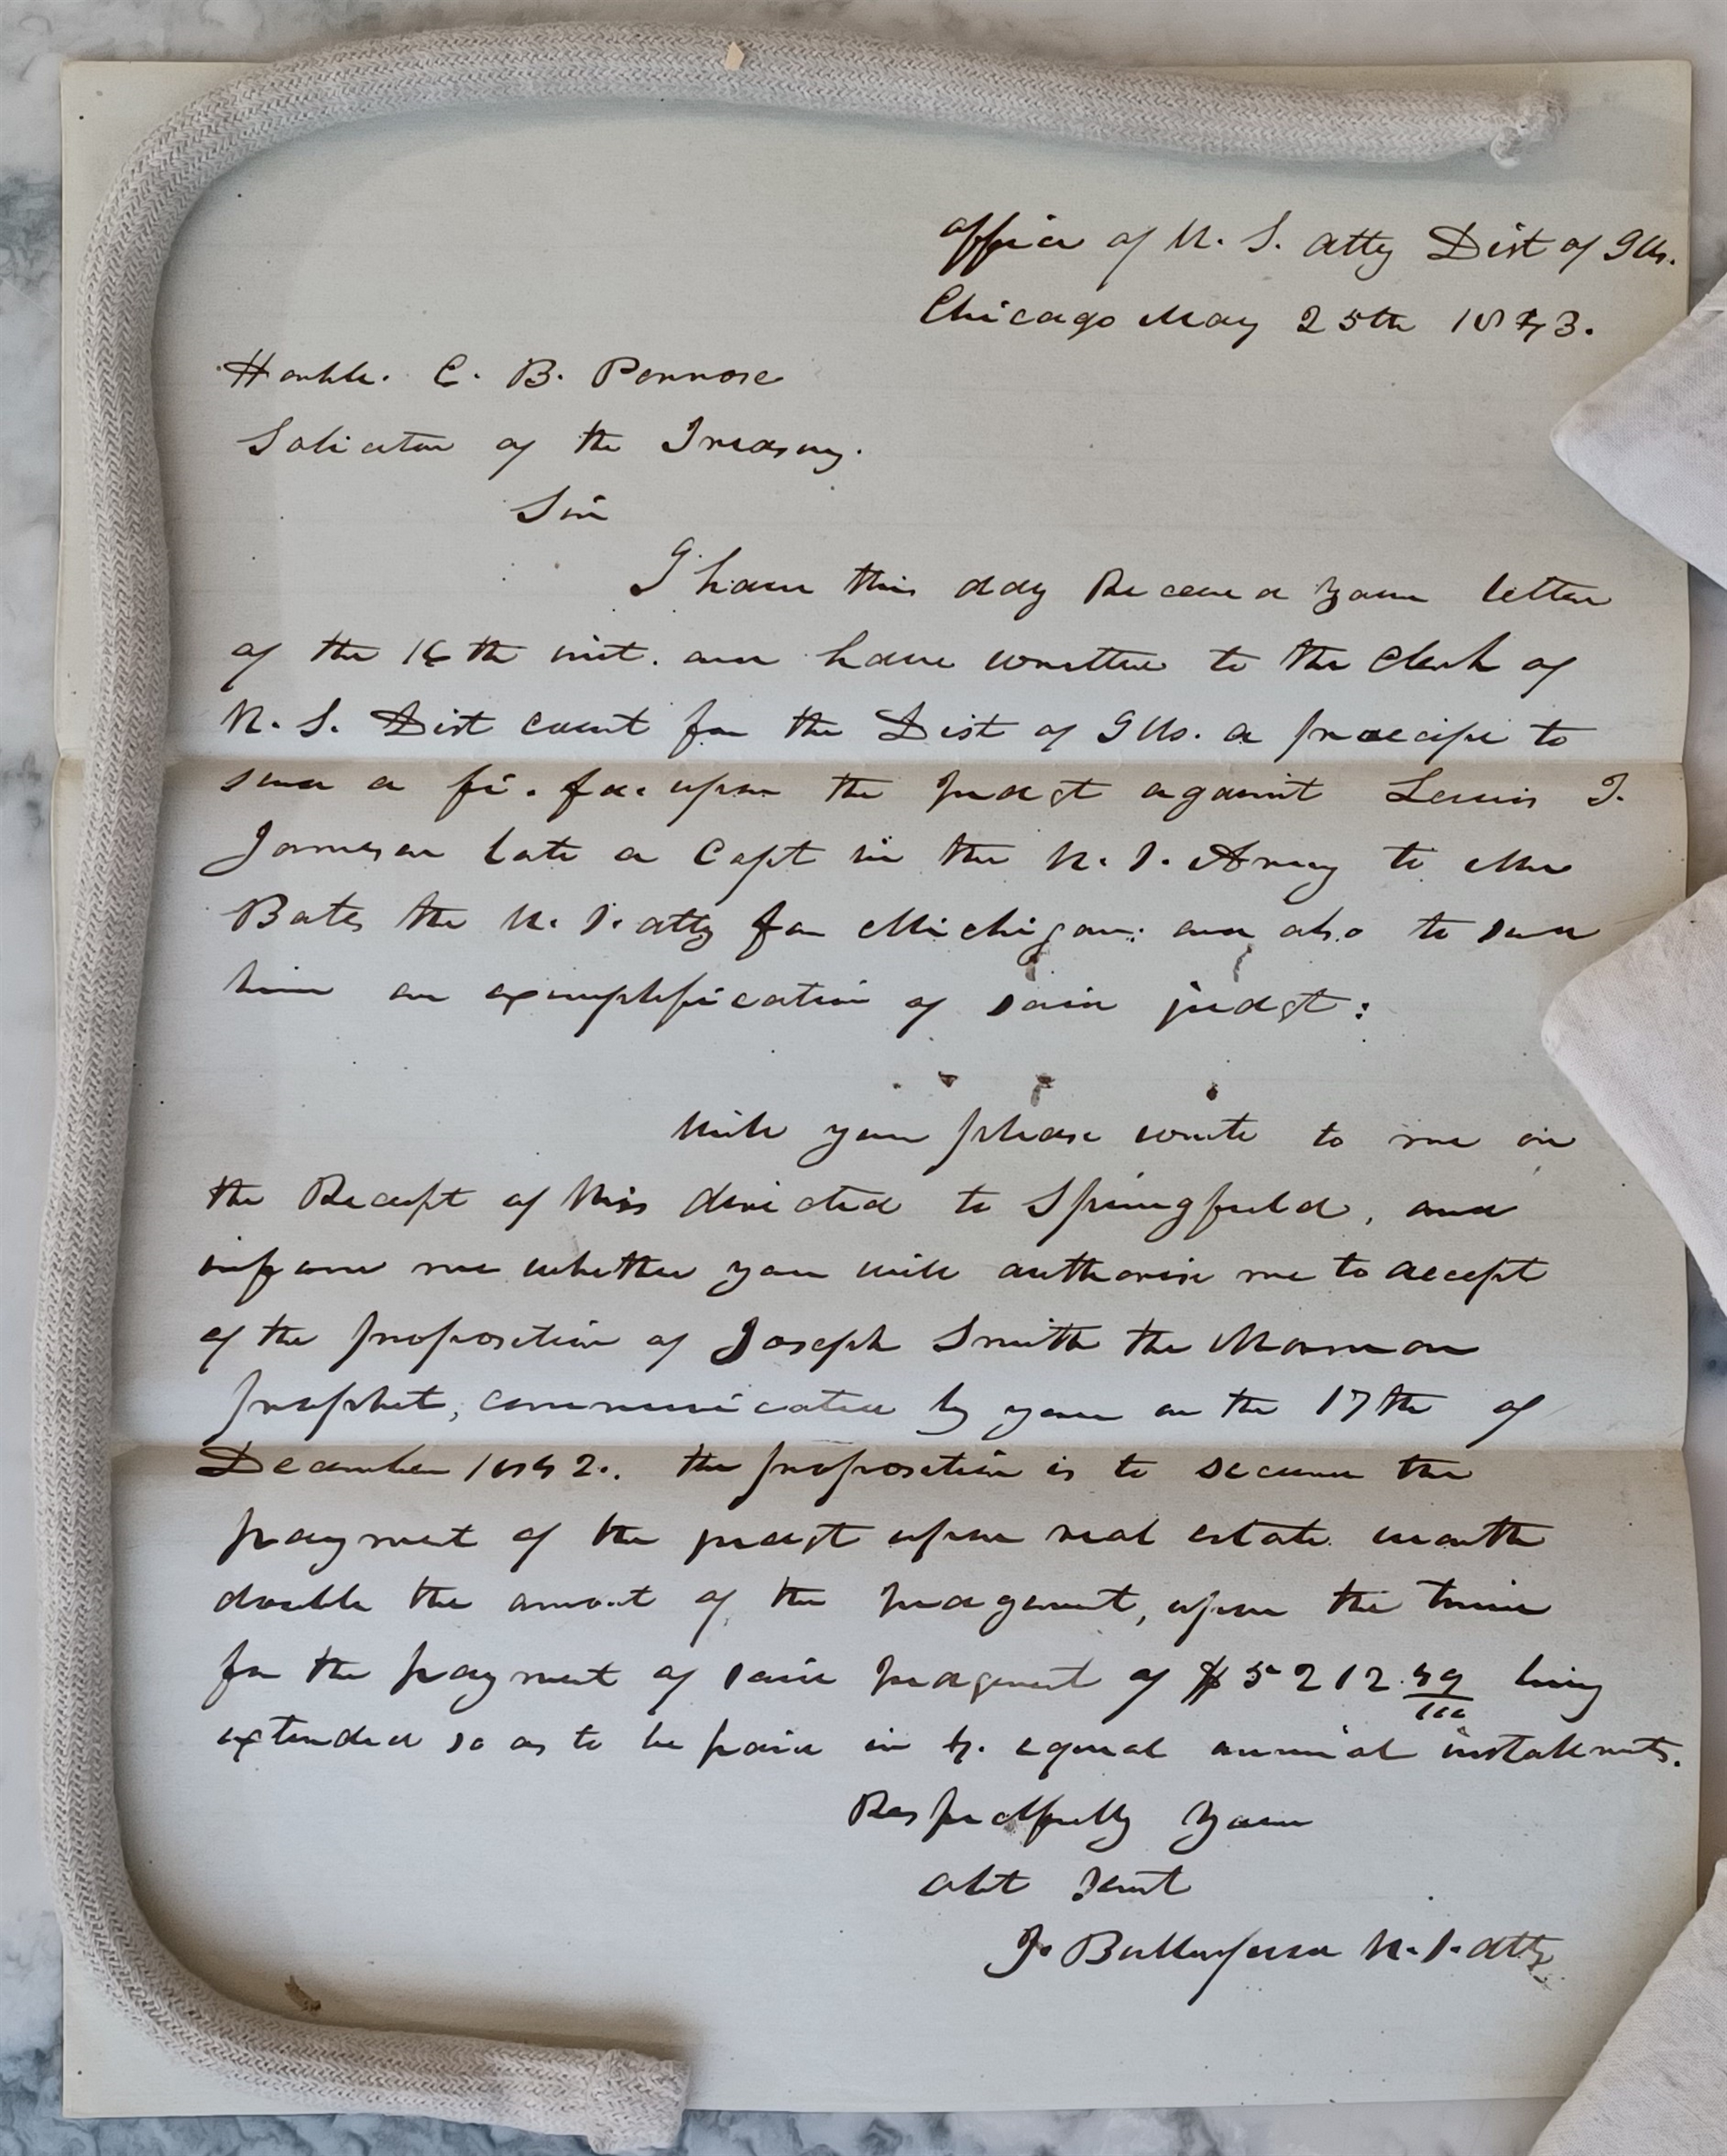 Office of U. S. Atty Dist of Ills.
Chicago May 25th 1843.
Honble. C. B. Penrose
Solicitor of the Treasury.
Sir
I have this day Received your letter
of the 16th inst. and have written to the Clerk of
U. S. Dist Court for the Dist of Ills. a praecipe to
send a fi. fa. upon the judgt against Lewis T.
Jameson late a Capt in the U. S. Army to Mr
Bates the U. S. atty for Michigan: and also to send
him an exemplification of said judgt:
Will you please write to me on
the Receipt of this directed to Springfield, and
inform me whether you will authorise me to accept
of the proposition of Joseph Smith the Mormon
prophet, communicated by you on the 17th of
December 1842.. the proposition is to secure the
payment of the judgt upon real estate worth
double the amont of the judgment, upon the time
for the payment of said judgment of $5212.49/100 being
extended so as to be paid in 4. equal annual installments.
Respectfully your
obt servt
J. Butterfield U. S. Atty